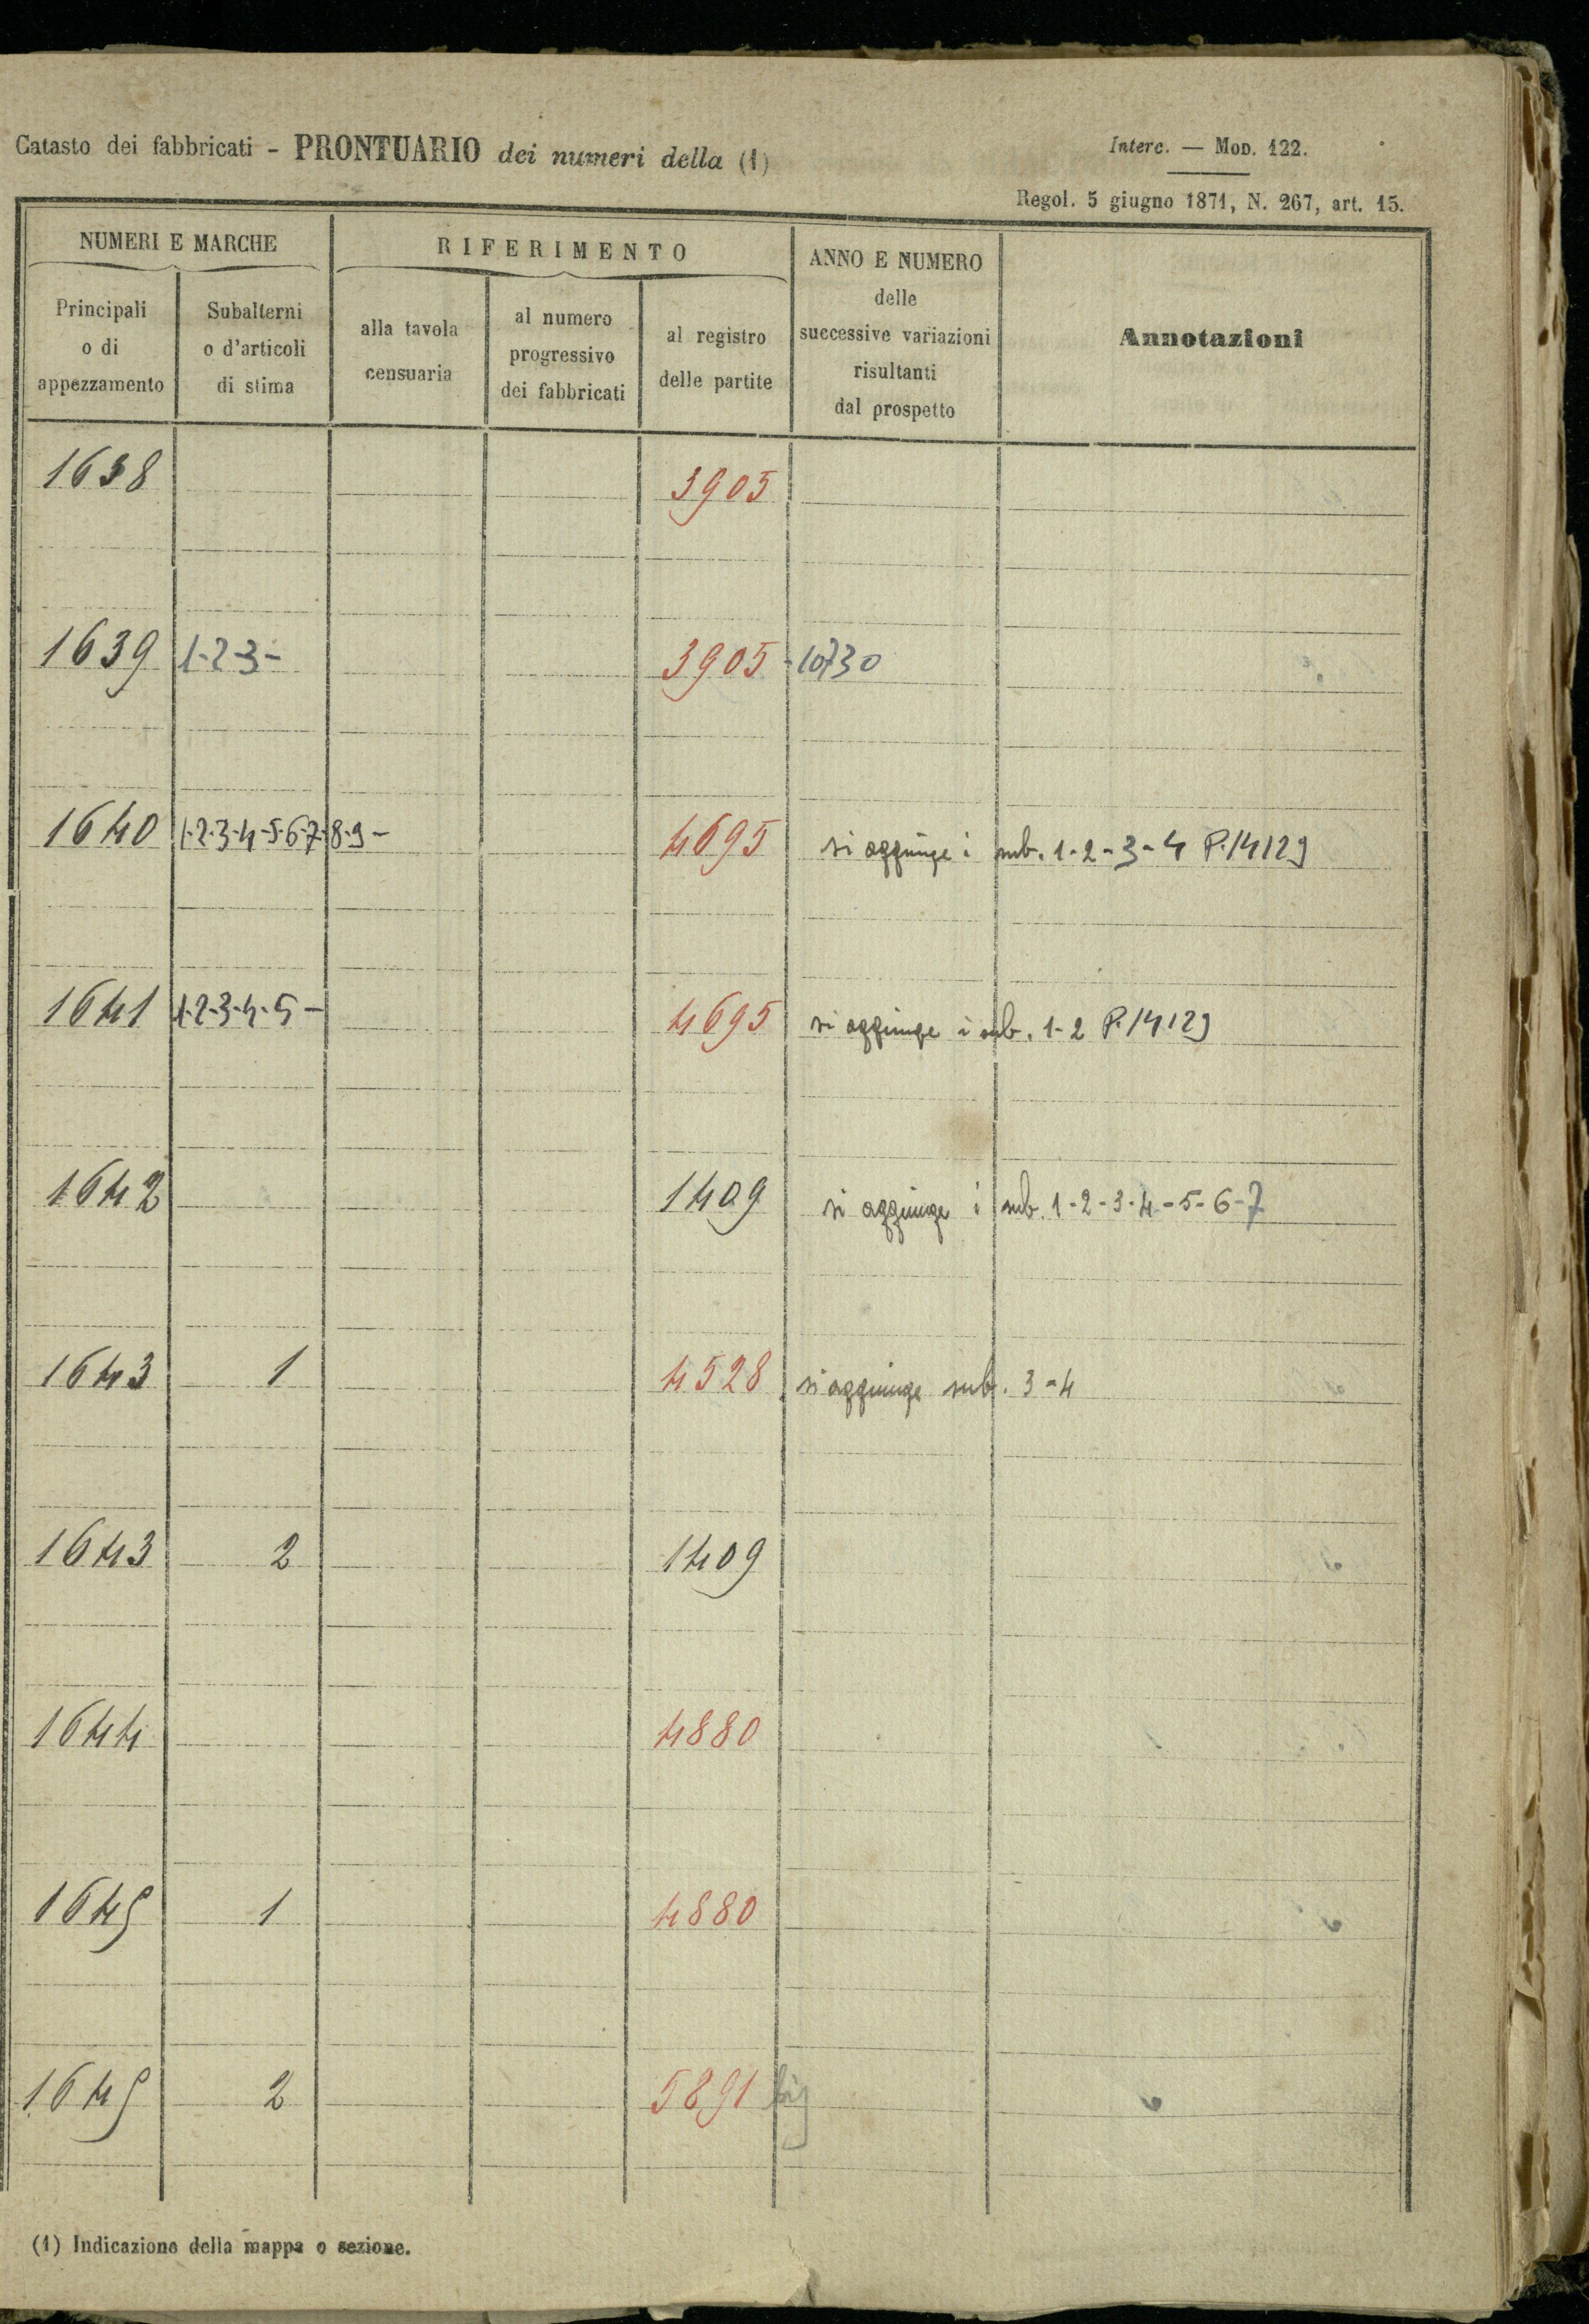 Catasto dei fabbricati - PRONTUARIO dei numeri della (1)
Interc. — Mod. 122.
Regol. 5 giugno 1871, N. 267, art. 15.
NUMERI E MARCHE
RIFERIMENTO
ANNO E NUMERO
delle
successive variazioni
risultanti
dal prospetto
Annotazioni
Principali
o di
appezzamento
Subalterni
o d'articoli
di stima
alla tavola
censuaria
al numero
progressivo
dei fabbricati
al registro
delle partite
1638 3905
1639 1-2-3- 3905 -10730
1640 1-2-3-4-5-6-7-8-9- 4695 si aggiunge i sub. 1-2-3-4 P. 14129
1641 1-2-3-4-5- 4695 si aggiunge i sub. 1-2 P. 14129
1642 1409 si aggiunge i sub. 1-2-3-4-5-6-7
1643 1 4528 si aggiunge sub. 3-4
1643 2 1409
1644 4880
1645 1 4880
1645 2 5891 bis
(1) Indicazione della mappa o sezione.